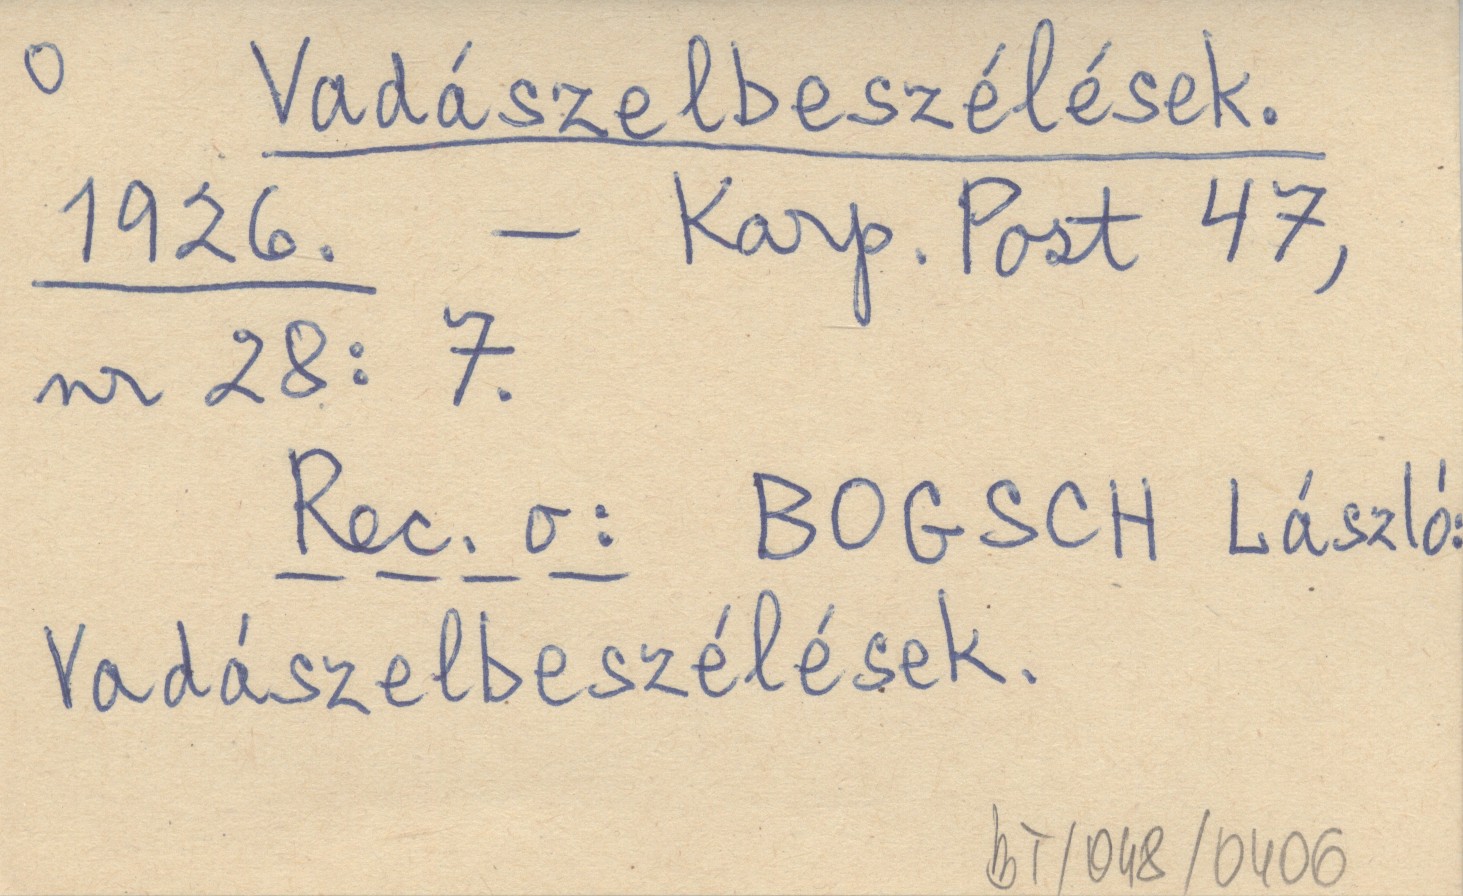 O Vadászelbeszélések.
1926. – Karp. Post 47,
nr 28: 7.
Rec. o: BOGSCH László:
Vadászelbeszélések.
BT/048/0406